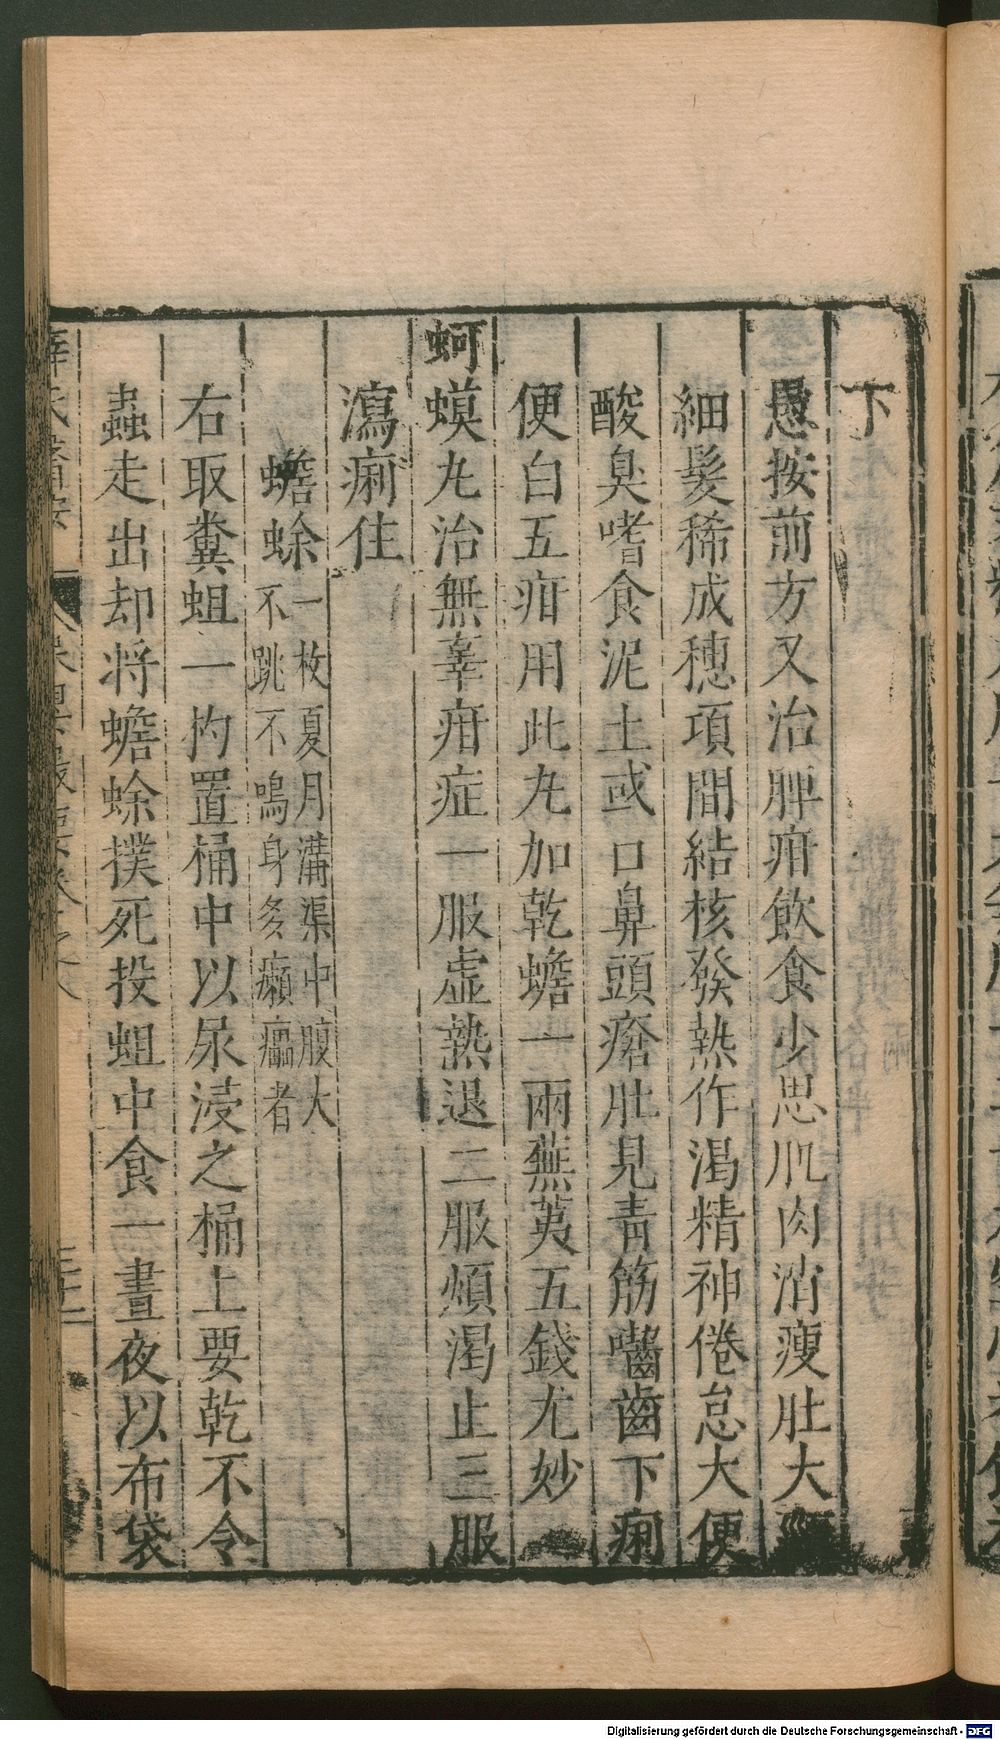 下
愚按前方又治脾疳飲食少思肌肉消瘦肚大
細髮稀成穗項間結核發熱作渴精神倦怠大便
酸臭嗜食泥土或口鼻頭瘡肚見青筋嚙齒下痢
便白五疳用此丸加乾蟾一兩蕪荑五錢尤妙
蚵蟆丸治無辜疳症一服虛熱退二服煩渴止三服
瀉痢住
蟾蜍一枚夏月溝渠中腹大
不跳不鳴身多癩𤺊者
右取糞蛆一杓置桶中以尿浸之桶上要乾不令
蟲走出却將蟾蜍撲死投蛆中食一晝夜以布袋
Digitalisierung gefördert durch die Deutsche Forschungsgemeinschaft - DFG